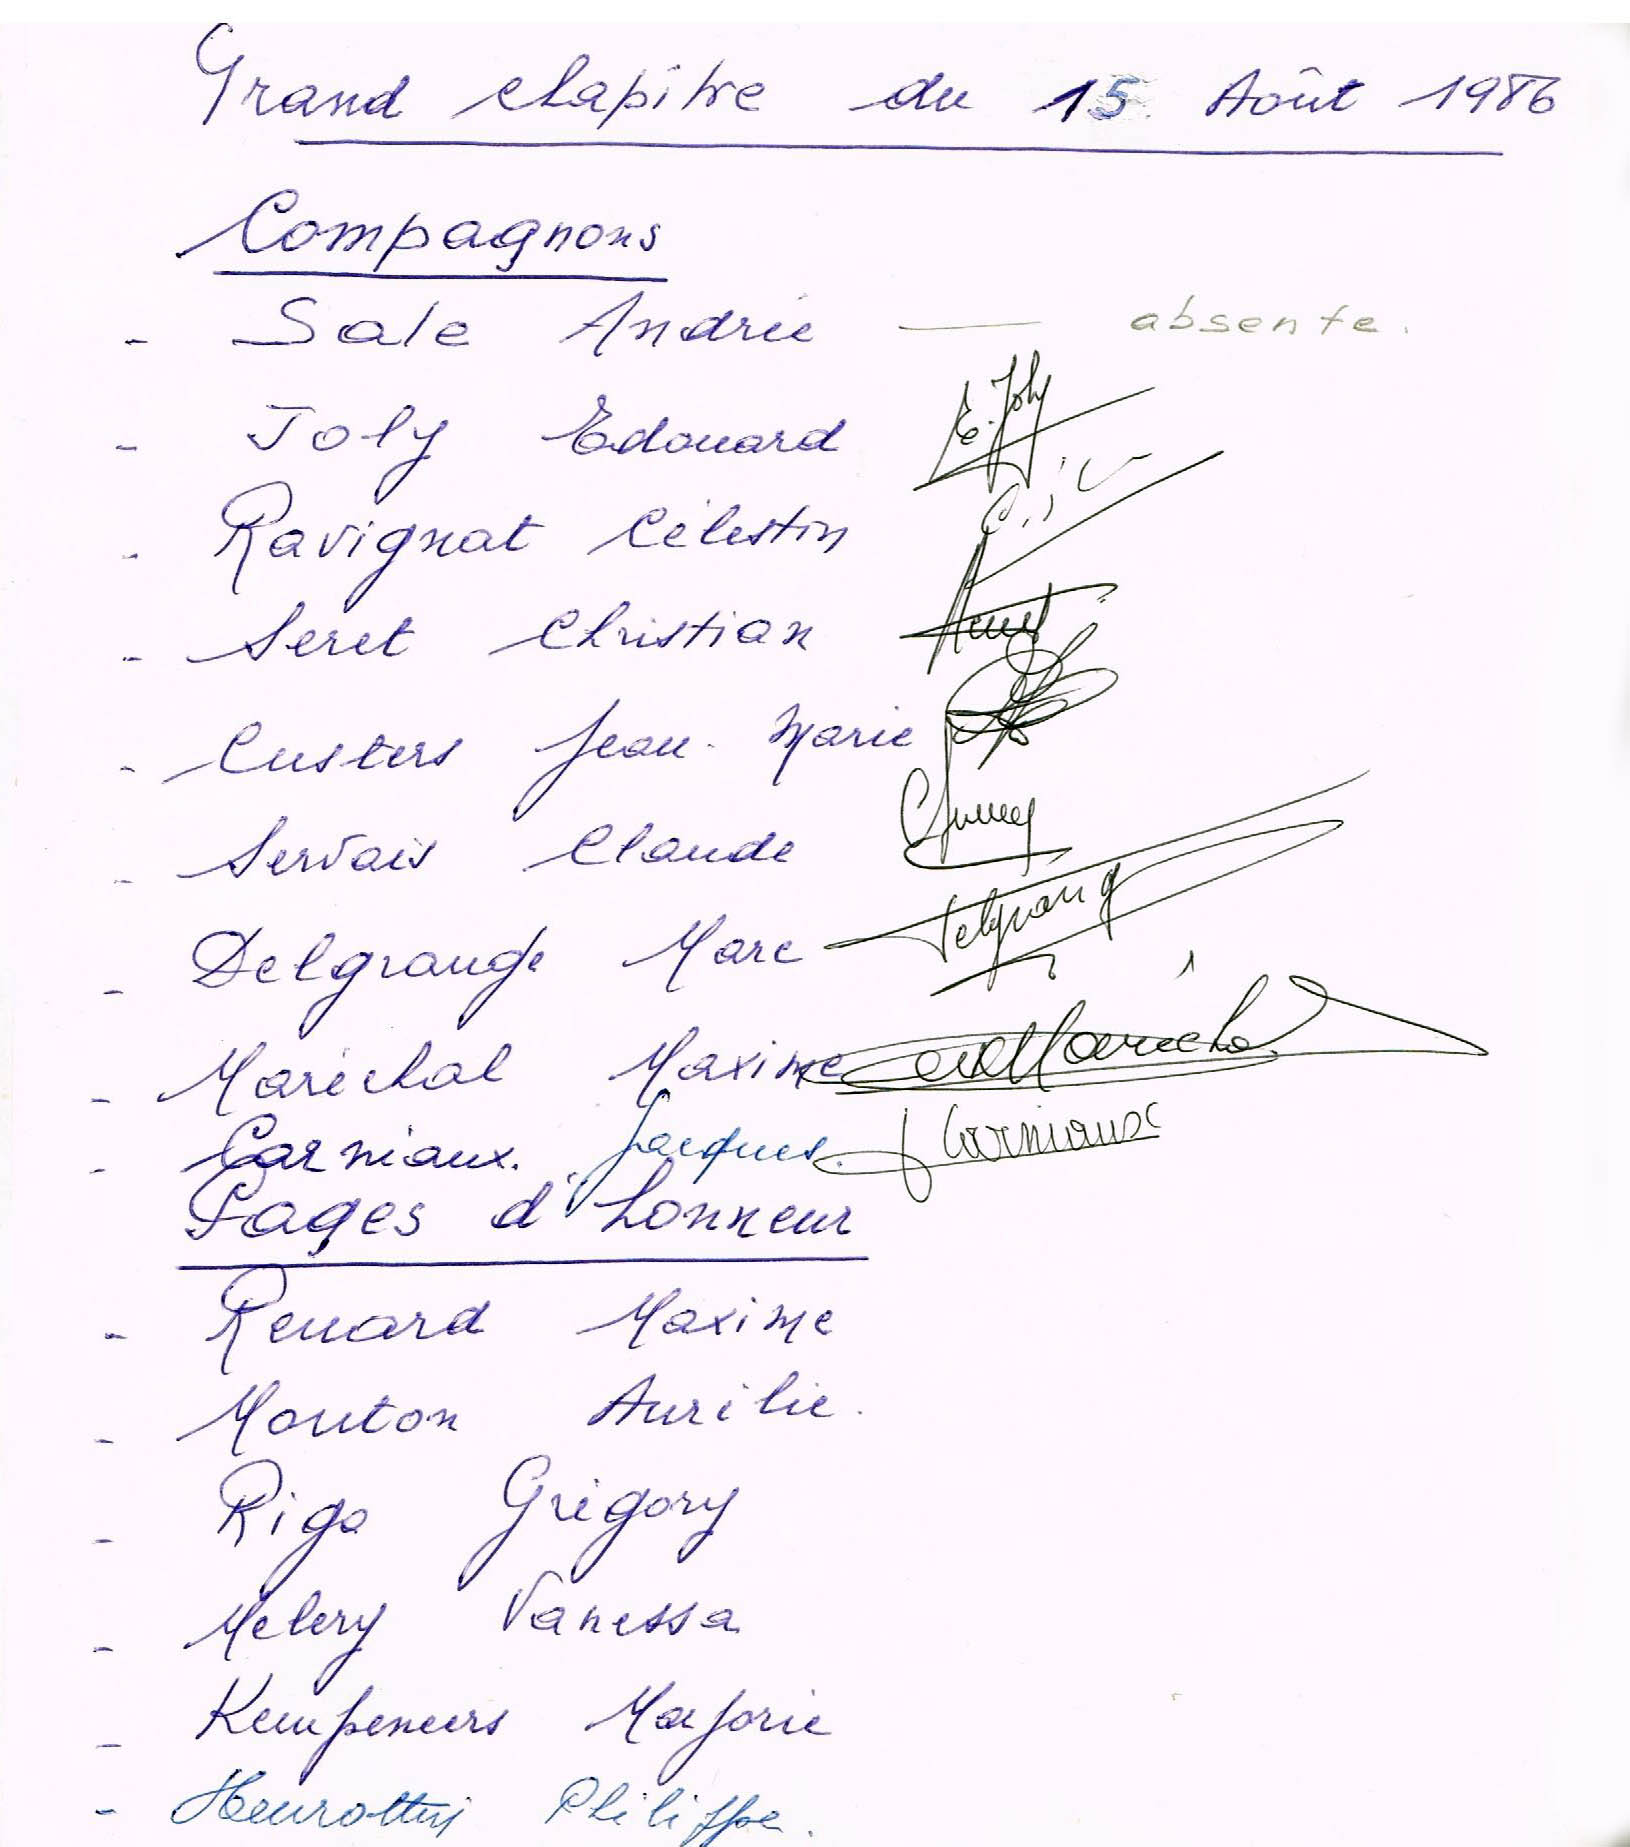 Grand chapître du 15 Août 1986
Compagnons
- Sale Andrée — absente.
- Joly Edouard E. Joly
- Ravignat Célestin
- Seret Christian Seret
- Custers Jean-Marie
- Servais Claude
- Delgrange Marc Delgrang
- Maréchal Maxime Maréchal
- Carniaux. Jacques. J Carniaux
Pages d'honneur
- Renard Maxime
- Mouton Aurélie.
- Rigo Grégory
- Melery Vanessa
- Kempeneers Marjorie
- Philippe.